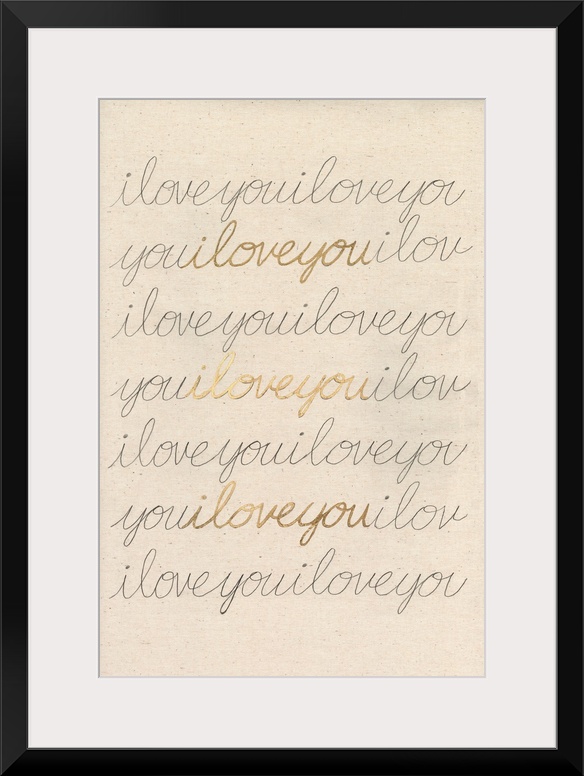 iloveyouiloveyou
youiloveyouilov
iloveyouiloveyou
youiloveyouilov
iloveyouiloveyou
youiloveyouilov
iloveyouiloveyou